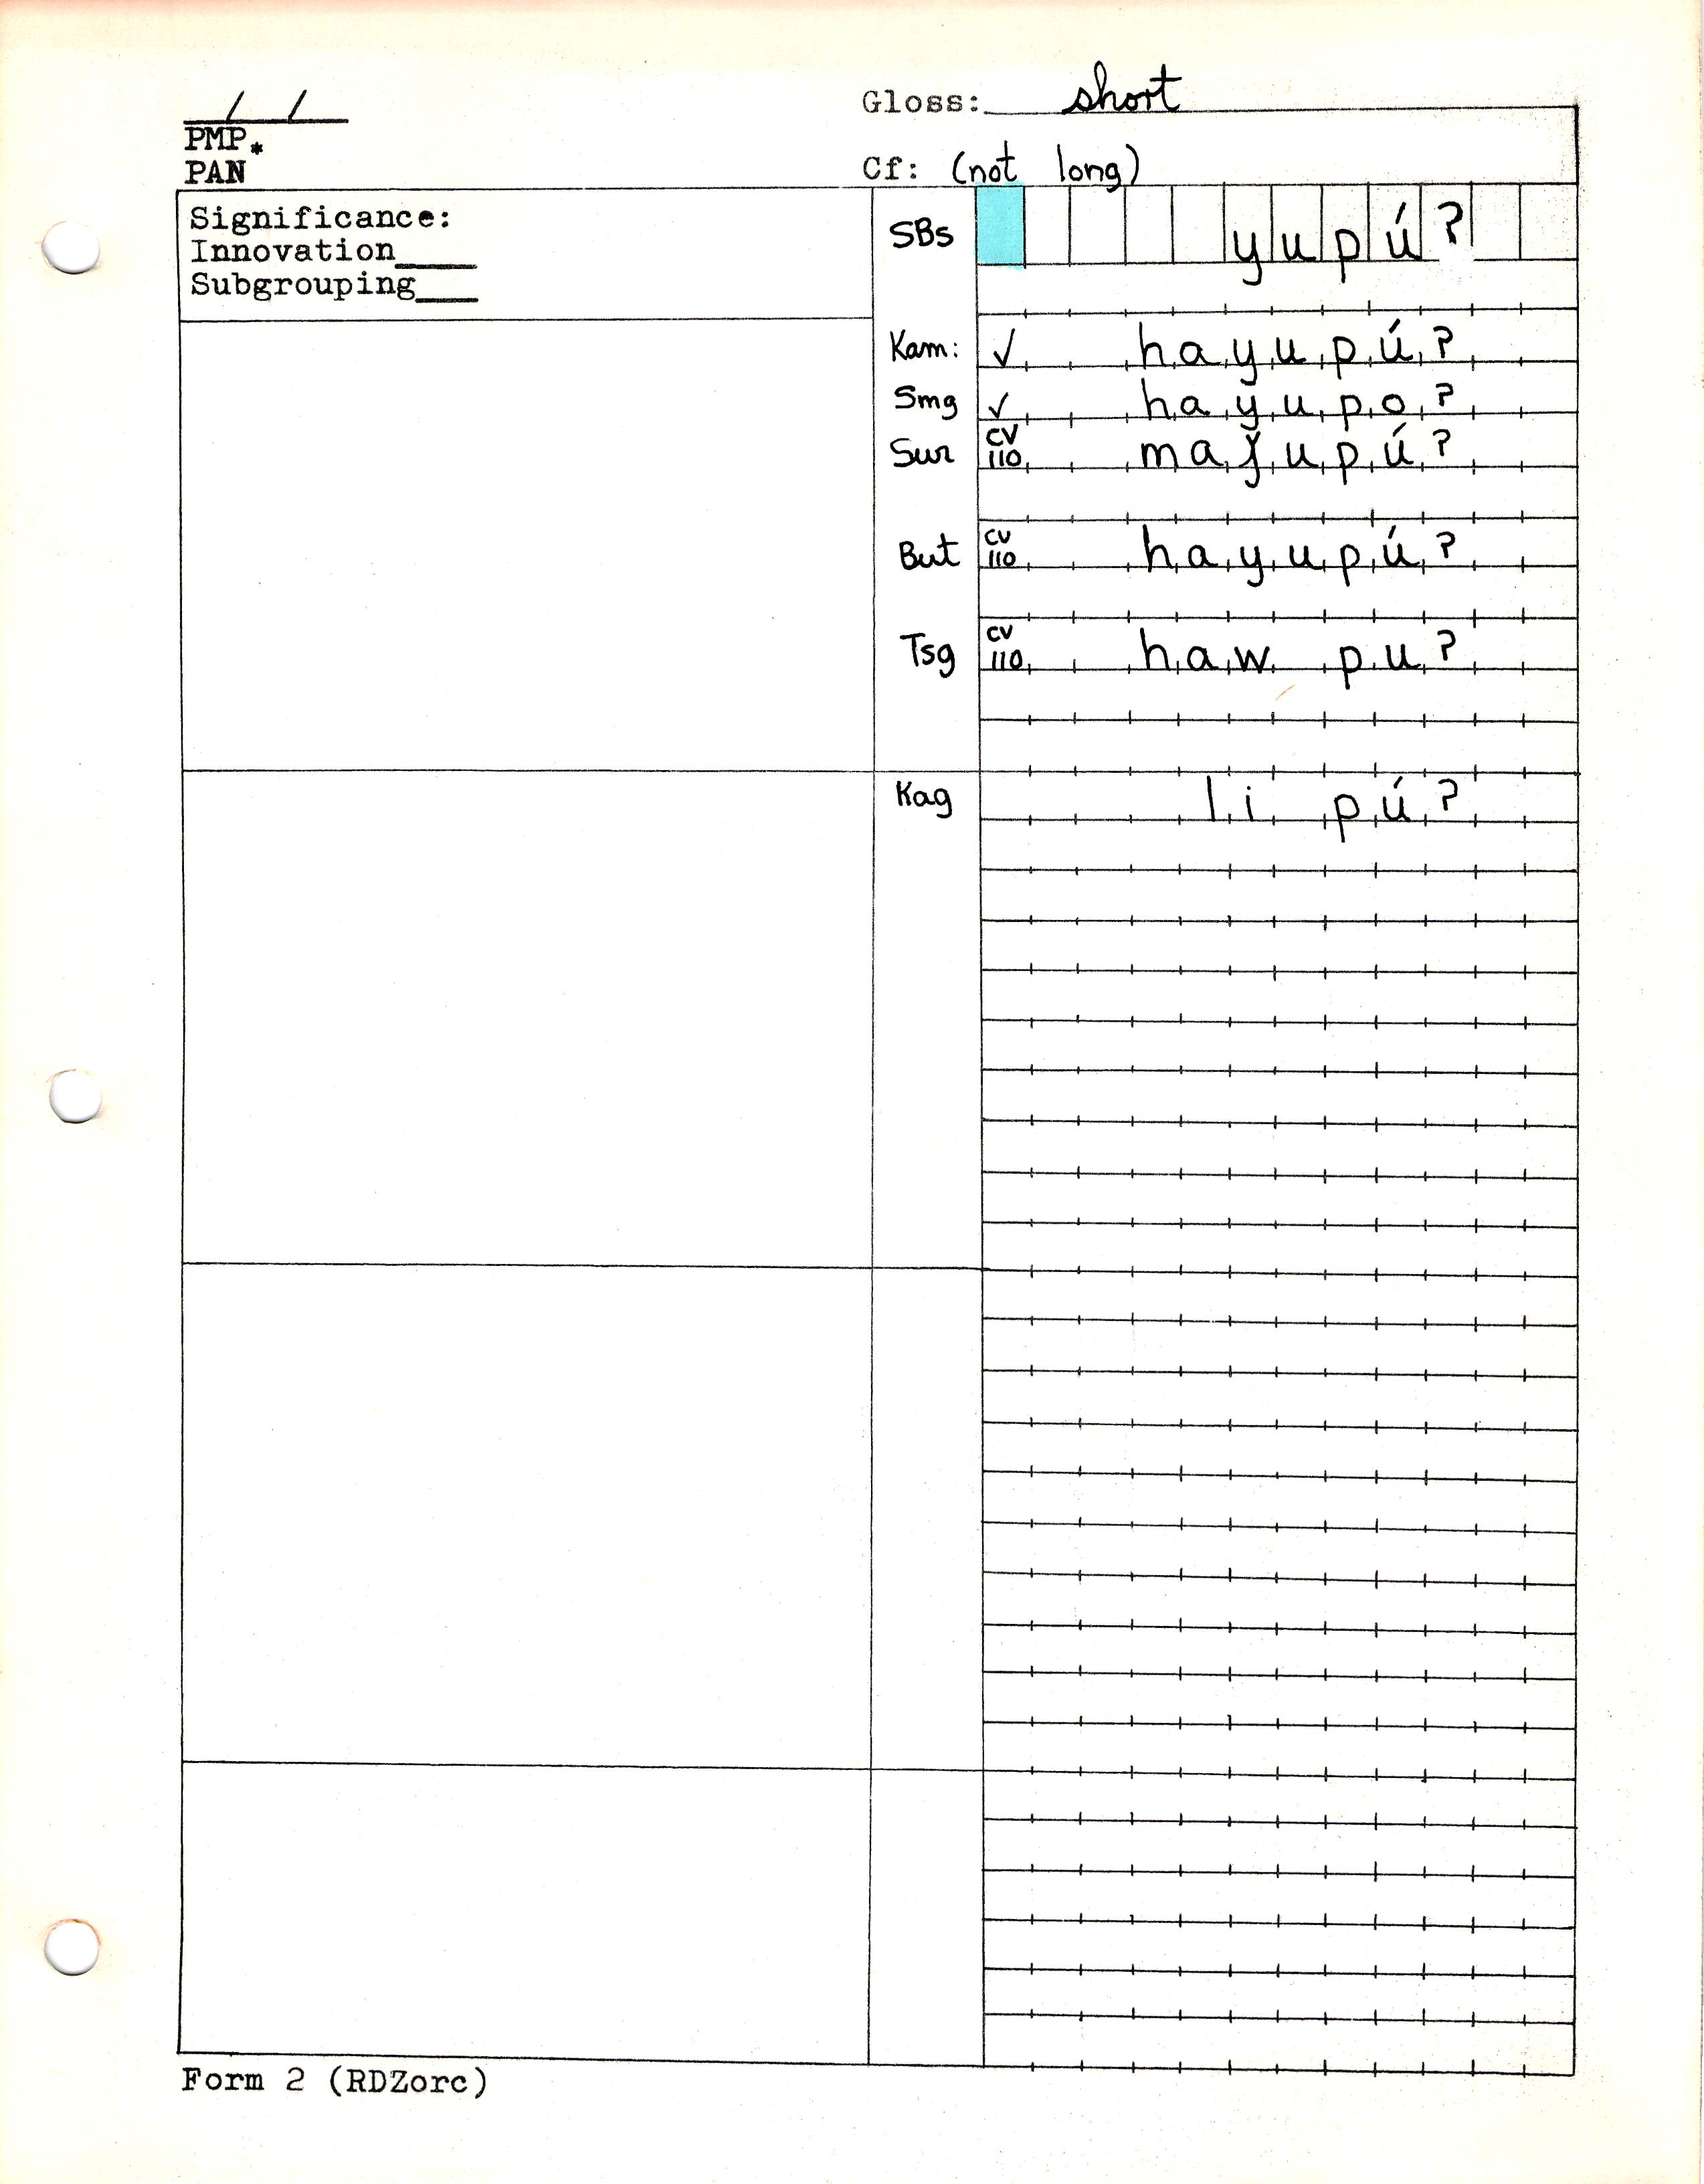 / /
Gloss: short
PMP*
PAN
Cf: (not long)
Significance:
Innovation____
Subgrouping___
SBs yupúʔ
Kam: ✓ hayupúʔ
Smg ✓ hayupoʔ
Sur CV 110 maǰupúʔ
But CV 110 hayupúʔ
Tsg CV 110 haw puʔ
Kag li púʔ
Form 2 (RDZorc)